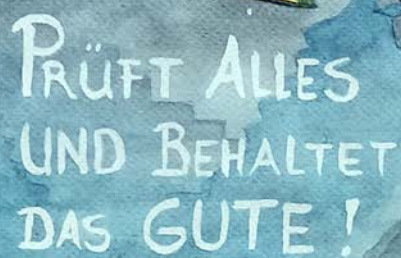 PRÜFT ALLES
UND BEHALTET
DAS GUTE!